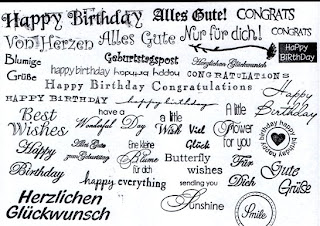 Happy Birthday Alles Gute! CONGRATS
Von Herzen Alles Gute Nur für dich! CONGRATS
HAPPY BiRThDAY
Blumige Grüße
Geburtstagspost
Herzlichen Glückwunsch
happy birthday
CONGRATULATIONS
Happy Birthday Congratulations
HAPPY BIRTHDAY happy birthday
Happy Birthday
Best Wishes
have a Wonderful Day
a little Wish
Viel Glück
A little Flower for you
happy birthday happy birthday
Happy Birthday
Alles Gute zum Geburtstag
Eine kleine Blume für dich
Butterfly wishes
Für Dich
Gute Grüße
happy everything
sending you Sunshine
Herzlichen Glückwunsch
Smile